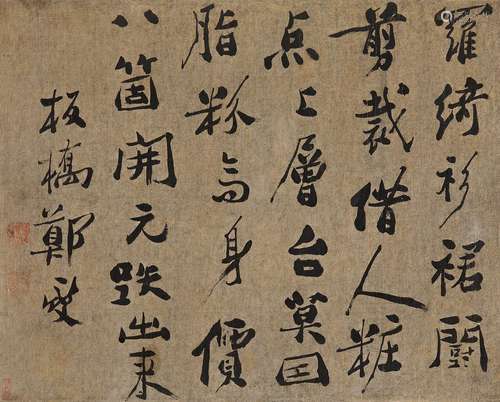 羅綺衫裙鬪
剪裁借人粧
点上層台莫囙
脂粉高身價
八箇開元跌出来
板橋鄭燮